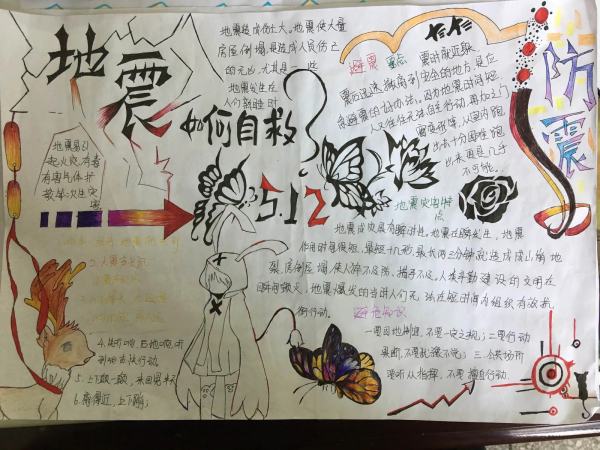 地震
如何自救
防震
5.12
地震造成伤亡大。地震使大量
房屋倒塌,是造成人员伤亡
的元凶,尤其是一些
地震发生在
人们熟睡时
避震
震时就近躲
震后迅速撤离到安全的地方,是应
急避震的好办法。因为地震时间短
人又往往无法自主行动,再加上门
窗变形等,从室内跑
出去十分困难,跑
出来更是几乎
不可能。
地震易引
起火灾,有毒
有害气体扩
散等次生灾
害
地震灾害特点
地震成灾具有瞬时性。地震在瞬间发生,地震
作用时间很短,最短十几秒,最长两三分钟就造成山崩地
裂,房倒屋塌,使人猝不及防,措手不及。人类辛勤建设的文明在
瞬间毁灭,地震爆发的当时人们无法在短时间内组织有效抗
衡行动。
避震知识
一要因地制宜,不要一定之规;二要行动
果断,不要犹豫不决;三公共场所
要听从指挥,不要擅自行动.
4.
5.上下颠一颠,来回晃半天
6.离得近,上下蹦;